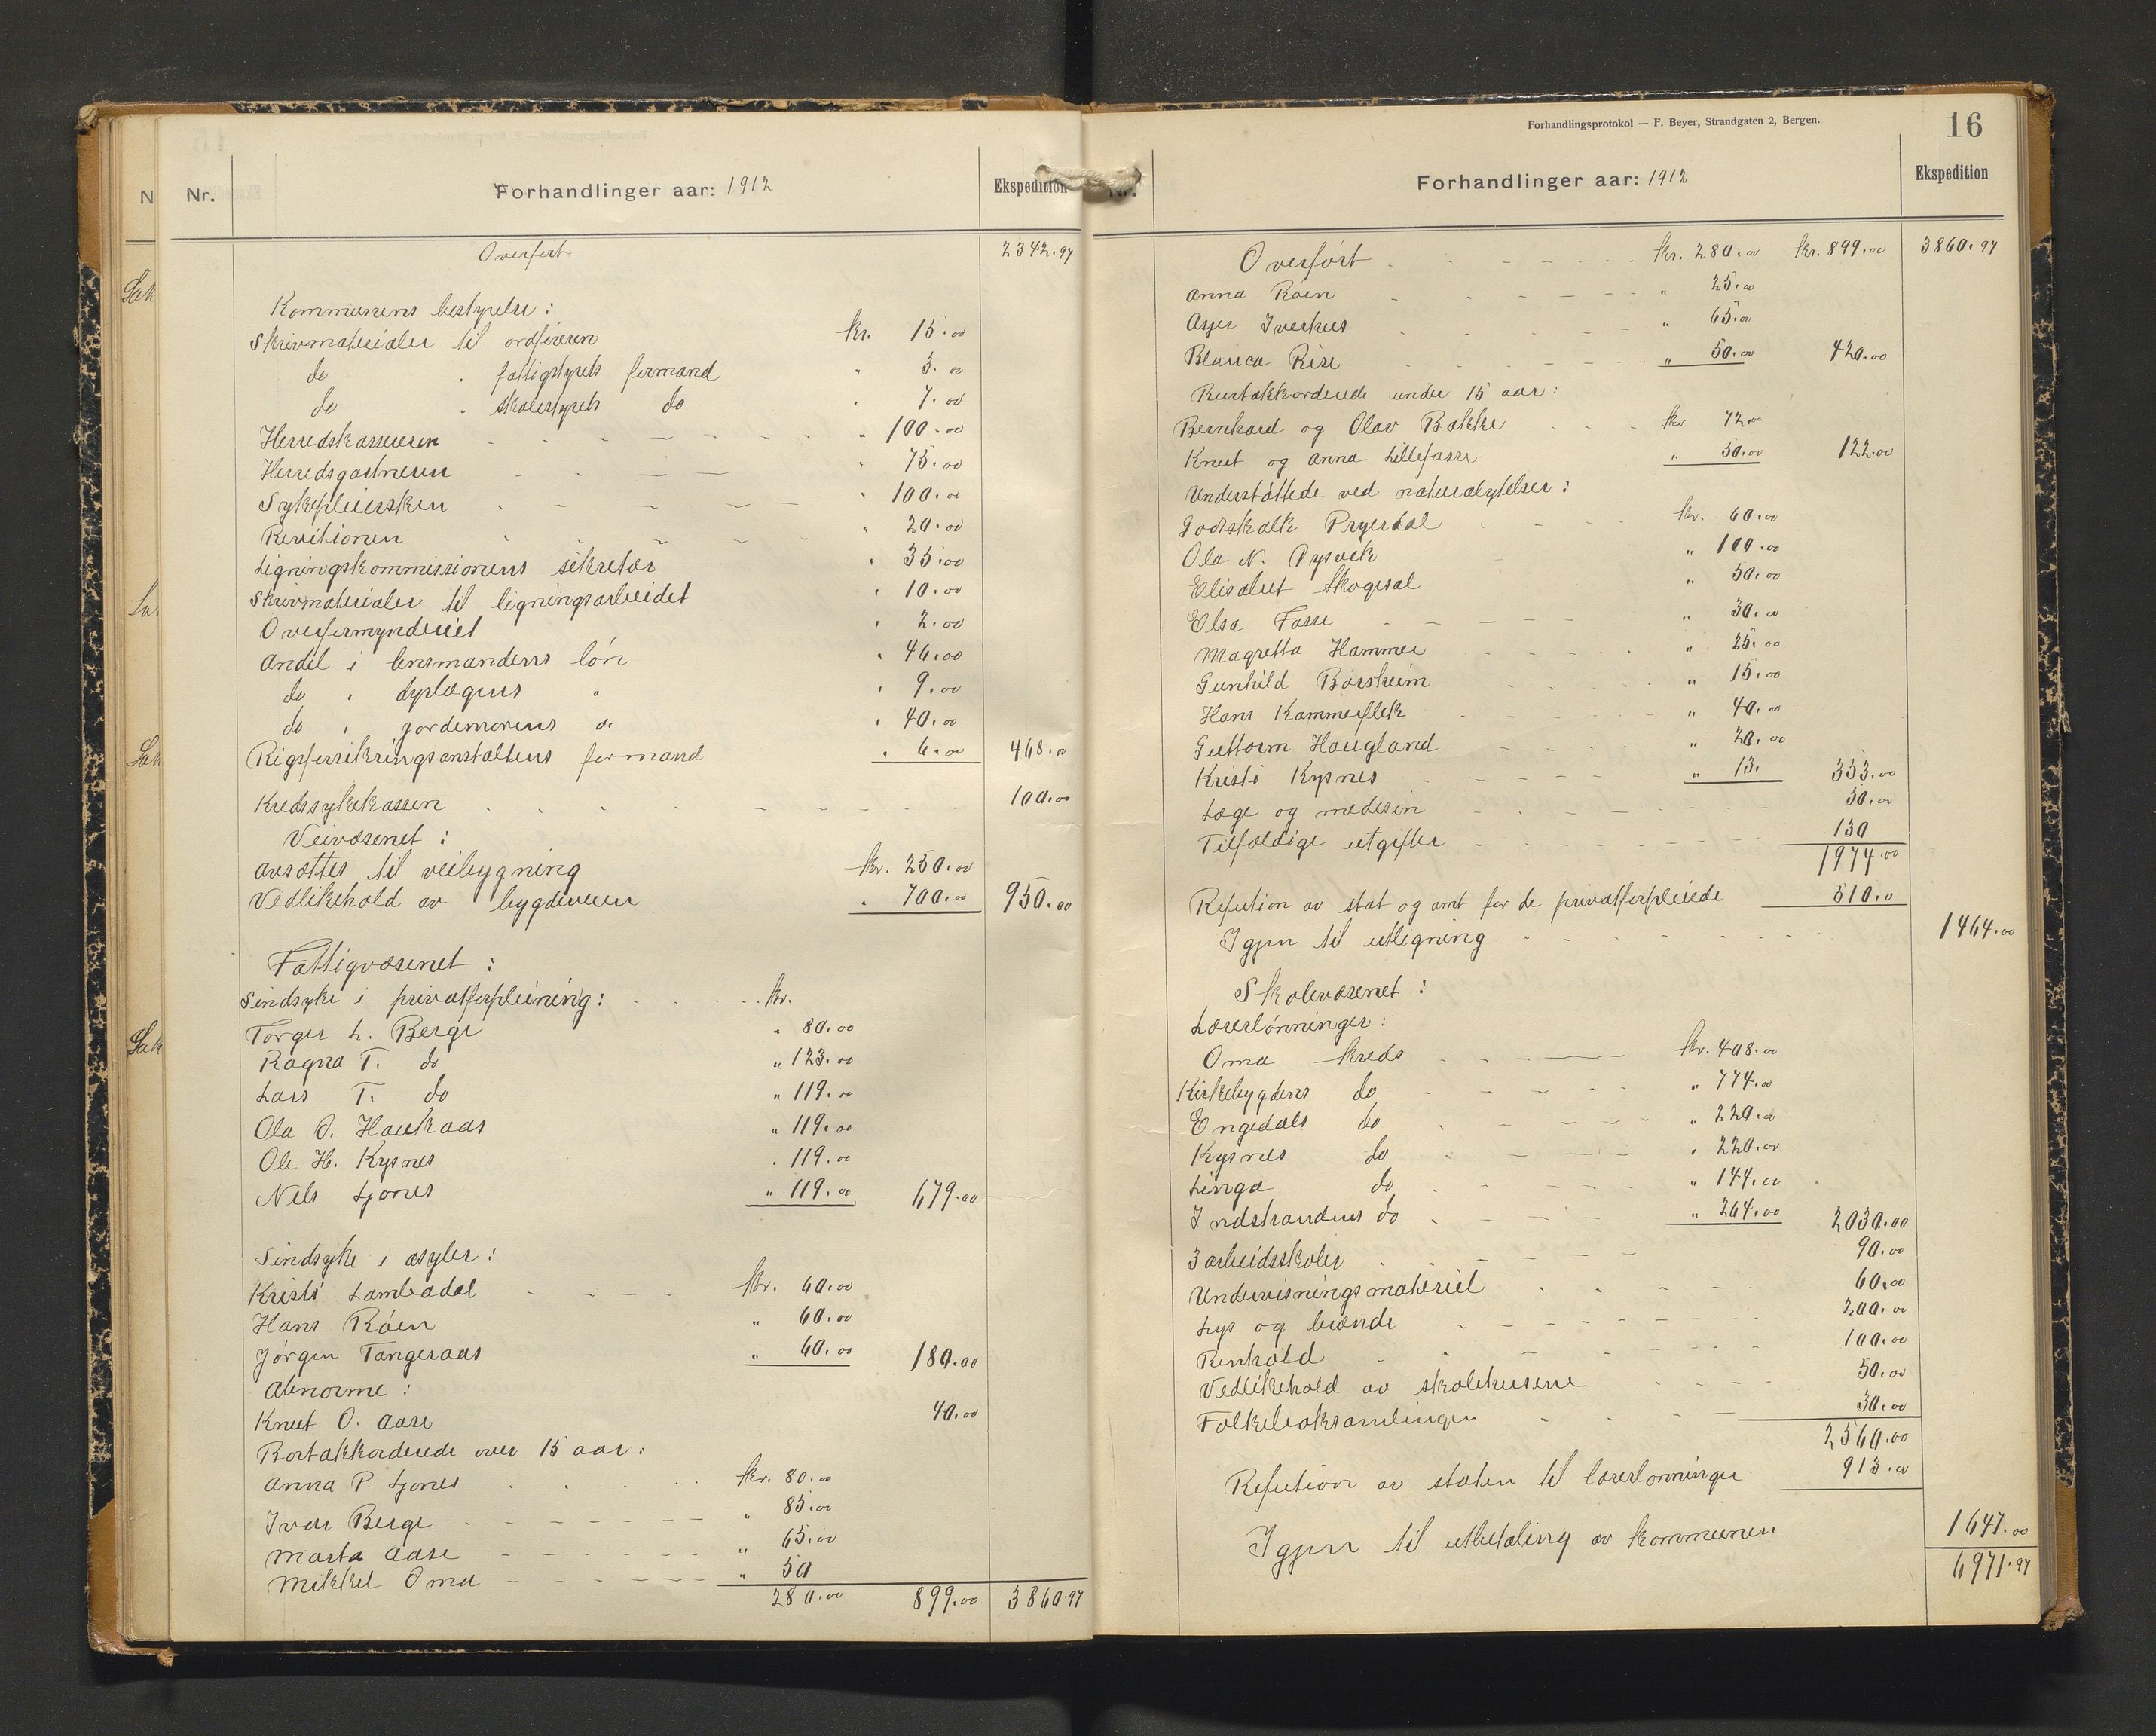 N
Sak
Sak
Sak
Nr. Forhandlinger aar: 1912 Ekspedition
Overført 2342.97
Kommunens bestyrelse:
Skrivmaterialer til ordføreren kr. 15.00
do " fattigstyrets formand " 3.00
do " skolestyrets do " 7.00
Herredskassereren " 100.00
Herredsgartneren " 75.00
Sykepleiersken " 100.00
Revisionen " 20.00
Ligningskommissionens sekretær " 35.00
Skrivmaterialer til ligningsarbeidet " 10.00
Overformynderiet " 2.00
Andel i lensmandens løn " 46.00
do " dyrlægens " " 9.00
do " jordemorens " " 40.00
Rigsforsikringsanstaltens formand " 6.00 468.00
Kredssykekassen 100.00
Veivæsenet:
Avsættes til veibygning kr. 250.00
Vedlikehold av bygdeveien " 700.00 950.00
Fattigvæsenet:
Sindsyke i privatforpleining: kr.
Torger L. Berge " 80.00
Ragna T. do " 123.00
Lars T. do " 119.00
Ola O. Haukaas " 119.00
Ole H. Kysnes " 119.00
Nils Ljones " 119.00 679.00
Sindsyke i asyler:
Kristi Lambadal kr. 60.00
Hans Røen " 60.00
Jørgen Tangeraas " 60.00 180.00
Abnorme:
Knut O. Aase 40.00
Bortakkorderede over 15 aar:
Anna P. Ljones kr. 80.00
Ivar Berge " 85.00
Marta Aase " 65.00
Mikkel Oma " 50
280.00 899.00 3860.97
Forhandlingsprotokol — F. Beyer, Strandgaten 2, Bergen.
16
Nr. Forhandlinger aar: 1912 Ekspedition
Overført kr. 280.00 kr. 899.00 3860.97
Anna Røen " 25.00
Iverhus " 65.00
Blanca Rise " 50.00 420.00
Bortakkorderede under 15 aar:
Bernhard og Olav Bakke kr 72.00
Knut og Anna Lillefosse " 50.00 122.00
Understøttede ved naturalytelser:
Godskalk kr. 60.00
Ola N. " 100.00
Elisabet Skogsal " 50.00
Elsa Fosse " 30.00
Magretta Hammer " 25.00
Gunhild Børsheim " 15.00
Hans Kammerflek " 40.00
Guttorm Haugland " 20.00
Kristi Kysnes " 13. 353.00
Læge og medesin 50.00
Tilfældige utgifter 130
1974.00
Refution av stat og amt for de privatforpleiede 510.0
Igjen til utligning 1464.00
Skolevæsenet:
Lærerlønninger:
Oma kreds kr. 408.00
Kirkebygdens do " 774.00
Engedals do " 220.00
Kysnes do " 220.00
Linga do " 144.00
Indstrandens do " 264.00 2030.00
3 arbeidsskoler 90.00
Undervisningsmateriel 60.00
Lys og brænde 200.00
Renhold 100.00
Vedlikehold av skolehusene 50.00
Folkeboksamlingen 30.00
2560.00
Refution av staten til lærerlønninger 913.00
Igjen til utbetaling av kommunen 1647.00
6971.97